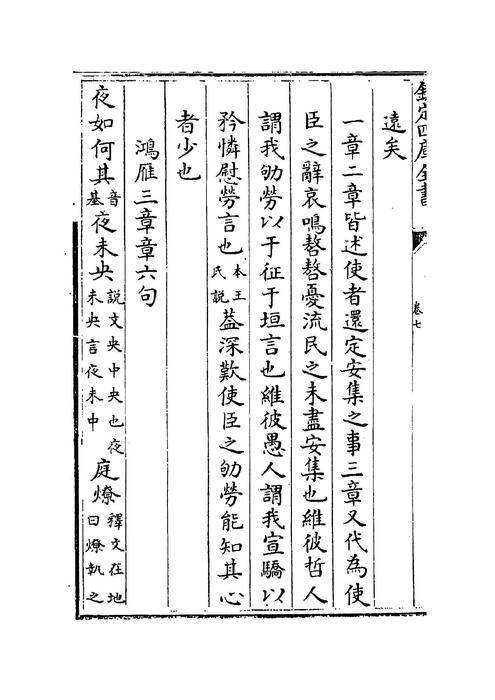 欽定四庫全書
卷七
遠矣
一章二章皆述使者還定安集之事三章又代為使
臣之辭哀鳴嗸嗸憂流民之未盡安集也維彼哲人
謂我劬勞以于征于垣言也維彼愚人謂我宣驕以
矜憐慰勞言也本王氏説葢深歎使臣之劬勞能知其心
者少也
鴻雁三章章六句
夜如何其音基夜未央説文央中央也夜未央言夜未中庭燎釋文在地曰燎執之